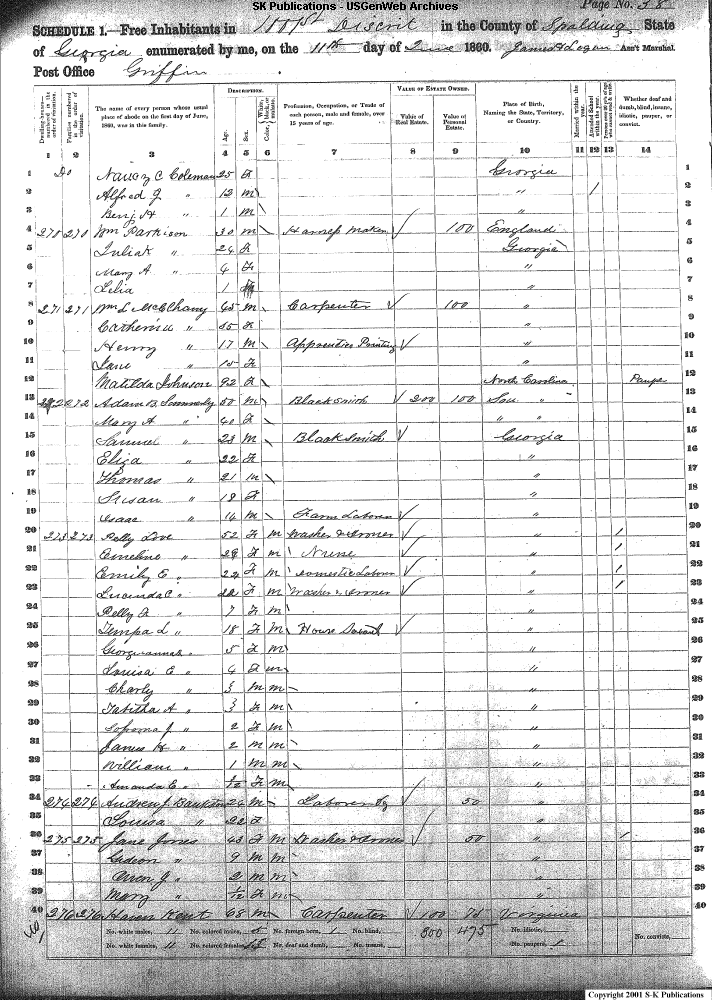 SK Publications - USGenWeb Archives
Page No. 38
SCHEDULE 1.—Free Inhabitants in 1001st District in the County of Spalding State
of Georgia enumerated by me, on the 11th day of June 1860. James H Logan Ass't Marshal.
Post Office Griffin
DESCRIPTION. VALUE OF ESTATE OWNED.
Dwelling-houses— numbered in the order of visitation. Families numbered in the order of visitation. The name of every person whose usual place of abode on the first day of June, 1860, was in this family. Age. Sex. Color, Profession, Occupation, or Trade of each person, male and female, over 15 years of age. Value of Real Estate. Value of Personal Estate. Place of Birth, Naming the State, Territory, or Country. Married within the year. Attended School within the year. Whether deaf and dumb, blind, insane, idiotic, pauper, or convict.
1 2 3 4 5 6 7 8 9 10 11 12 13 14
1 Do Nancy C Coleman 25 F Georgia 1
2 Alfred J " 12 M " / 2
3 Benj H " 1 M " 3
4 270 270 Wm Parkison 30 M Harness Maker 100 England 4
5 Julia " 24 F Georgia 5
6 Mary A " 4 F " 6
7 Lelia 1 " 7
8 271 271 Wm L McElhany 45 M Carpenter 100 " 8
9 Catherine " F " 9
10 Henry " 17 M Apprentice Printing " 10
11 Jane " 15 F " 11
12 Matilda Johnson 92 F North Carolina Pauper 12
13 272 Adam B 50 M Blacksmith 200 100 Sou " 13
14 Mary A " 40 F " " 14
15 Samuel " 23 M Blacksmith Georgia 15
16 Eliza " 22 F " 16
17 Thomas " 21 M " 17
18 Susan " 18 F " 18
19 Isaac " 14 M Farm Laborer " 19
20 273 273 Pelly Love 52 F M Washer & Ironer " / 20
21 Emeline " 29 F M Nurse " / 21
22 Emily E " 22 F M Domestic Labour " / 22
23 Lucinda C " 22 F M Washer & Ironer " / 23
24 Pelly F " 7 F M " 24
25 Tempa L " 18 F M House Servant " 25
26 Georgiannah " 5 F M " 26
27 Louisa E " 4 F M " 27
28 Charly " 3 M M " 28
29 Tabitha A " 3 F M " 29
30 Sophona J " 2 F M " 30
31 James H " 2 M M " 31
32 William " 1 M M " 32
33 Amanda E " F M " 33
34 274 274 Andrew J 24 M Laborer 50 " 34
35 Louisa " 22 F " 35
36 275 275 Jane Jones 43 F M Washer & Ironer 50 " / 36
37 Gideon " 9 M M " 37
38 Oren J " 2 M M " 38
39 Mary " F M " 39
40 276 276 Kent 68 M Carpenter 100 Virginia 40
No. white males, 11 No. colored males, No. foreign born, 1 No. blind, 300 475 No. idiotic, No. convicts,
No. white females, 11 No. colored females, No. deaf and dumb, No. insane, No. paupers, 1
Copyright 2001 S-K Publications